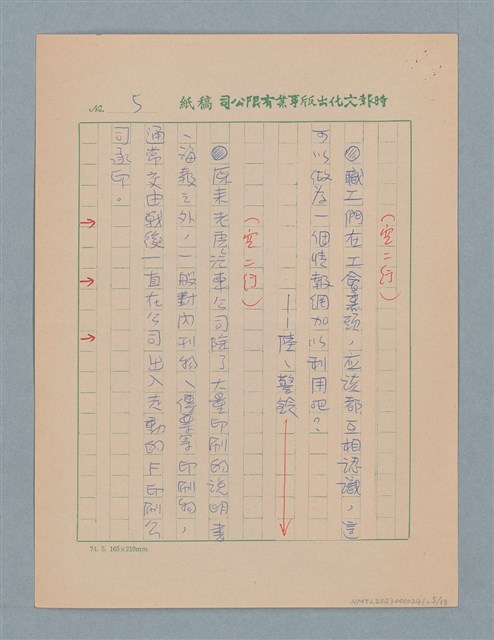 時報文化出版事業有限公司 稿紙
No. 5
（空二行）
◎職工們在工會裏頭，應該都互相認識，這
可以做為一個情報網加以利用吧？
——陸、警鈴
（空二行）
◎原來老唐汽車公司除了大量印刷的說明書
、海報之外，一般對內刊物、傳票等印刷物，
通常交由戰後一直在公司出入走動的F印刷公
司承印。
74. 5. 165×210mm